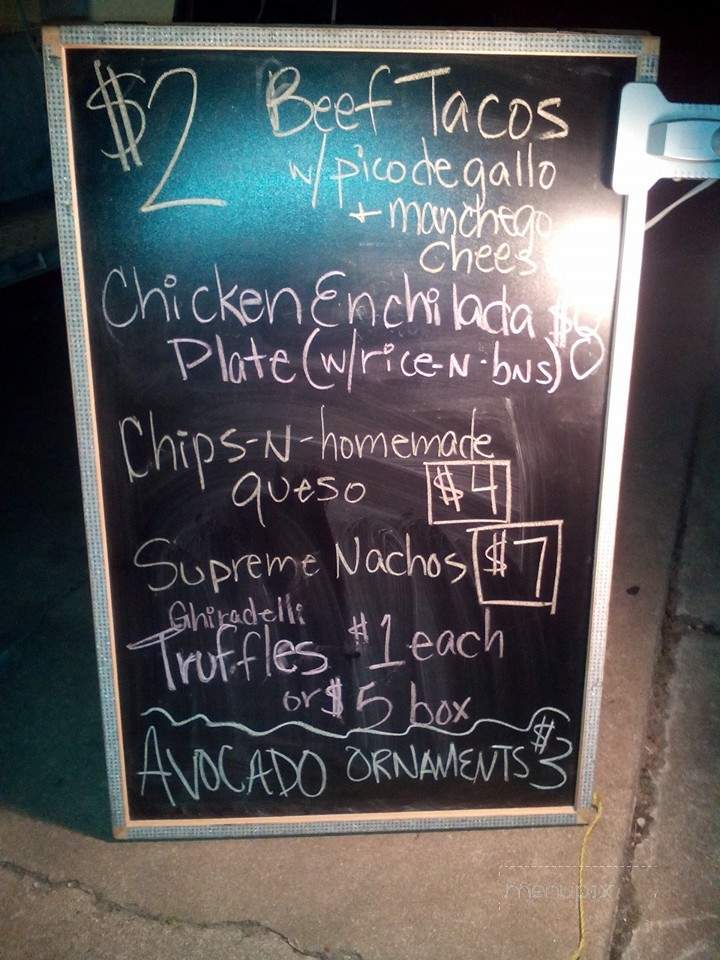 $2 Beef Tacos
w/pico de gallo
+ manchego
chees
Chicken Enchilada
Plate (w/rice-N-bns)
Chips-N-homemade
queso $4
Supreme Nachos $7
Ghiradelli
Truffles $1 each
or $5 box
AVOCADO ORNAMENTS $3
menupix